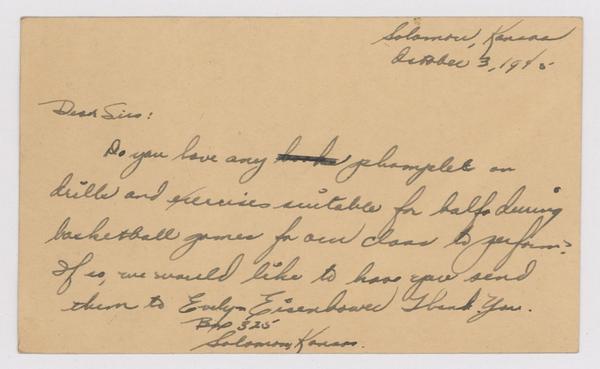 Solomon, Kansas
October 3, 1945
Dear Sirs:
Do you have any phamplet on
drills and exercises suitable for halfs during
basketball games for our class to perform?
If so, we would like to have you send
them to Evelyn Eisenhower Thank You.
Box 325
Solomon, Kansas.